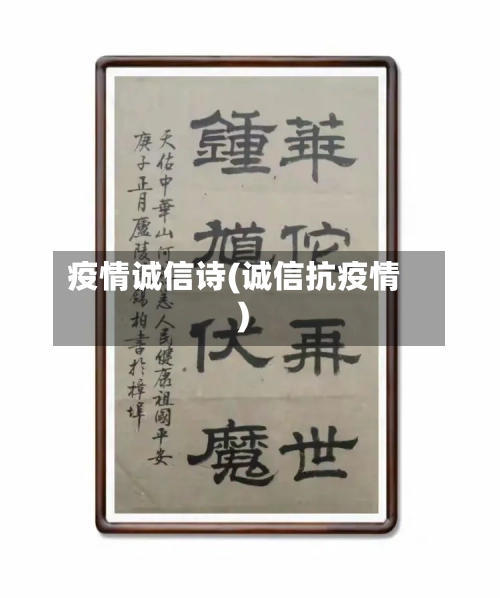 華佗再世
鍾馗伏魔
天佑中華山河
人民健康祖國平安
庚子正月廬陵
錫柏書於樟埠
疫情诚信诗(诚信抗疫情
)